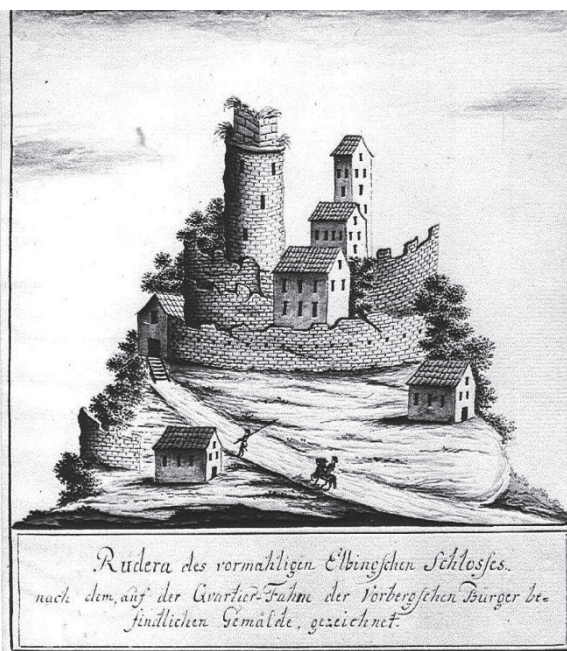 Rudera des vormahligen Elbingschen Schlosses.
nach dem, auf der Qvartier-Fahne der Vorbergschen Bürger be=
findlichen Gemälde, gezeichnet.